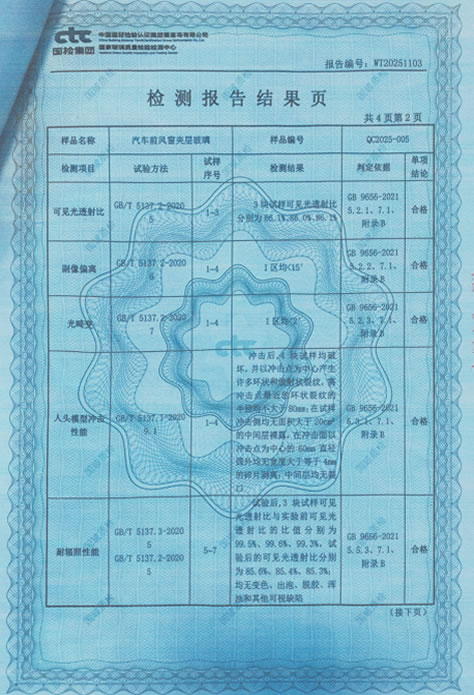 ctc
国检集团
中国国检测试控股集团股份有限公司
国家玻璃质量检验检测中心
报告编号：WT20251103
检测报告结果页
共 4 页第 2 页
样品名称 汽车前风窗夹层玻璃 样品编号 QC2025-005
检测项目 试验方法 试样序号 检测结果 判定依据 单项结论
可见光透射比 GB/T 5137.2-2020 5 1-3 3 块试样可见光透射比分别为 86.1%、86.0%、86.1% GB 9656-2021 5.2.1、7.1、附录B 合格
副像偏离 GB/T 5137.2-2020 6 1-4 I 区均<15′ GB 9656-2021 5.2.2、7.1、附录B 合格
光畸变 GB/T 5137.2-2020 7 1-4 I 区均<2′ GB 9656-2021 5.2.3、7.1、附录B 合格
人头模型冲击性能 GB/T 5137.1-2020 9.1 1-4 冲击后，4 块试样均破坏，并以冲击点为中心产生许多环状和放射状裂纹，离冲击点最近的环状裂纹的半径均不大于 80mm；在试样冲击侧均无面积大于 20cm² 的中间层裸露，在冲击面以冲击点为中心的 60mm 直径 GB 9656-2021 5.3.1、7.1、附录B 合格
耐辐照性能 GB/T 5137.3-2020 5 GB/T 5137.2-2020 5 5-7 试验后，3 块试样可见光透射比与实验前可见光透射比的比值分别为 99.5%、99.6%、99.3%，试验后的可见光透射比分别为 85.6%、85.4%、85.3%；均无变色、出泡、脱胶、浑浊和其他可视缺陷 GB 9656-2021 5.5.3、7.1、附录B 合格
（接下页）